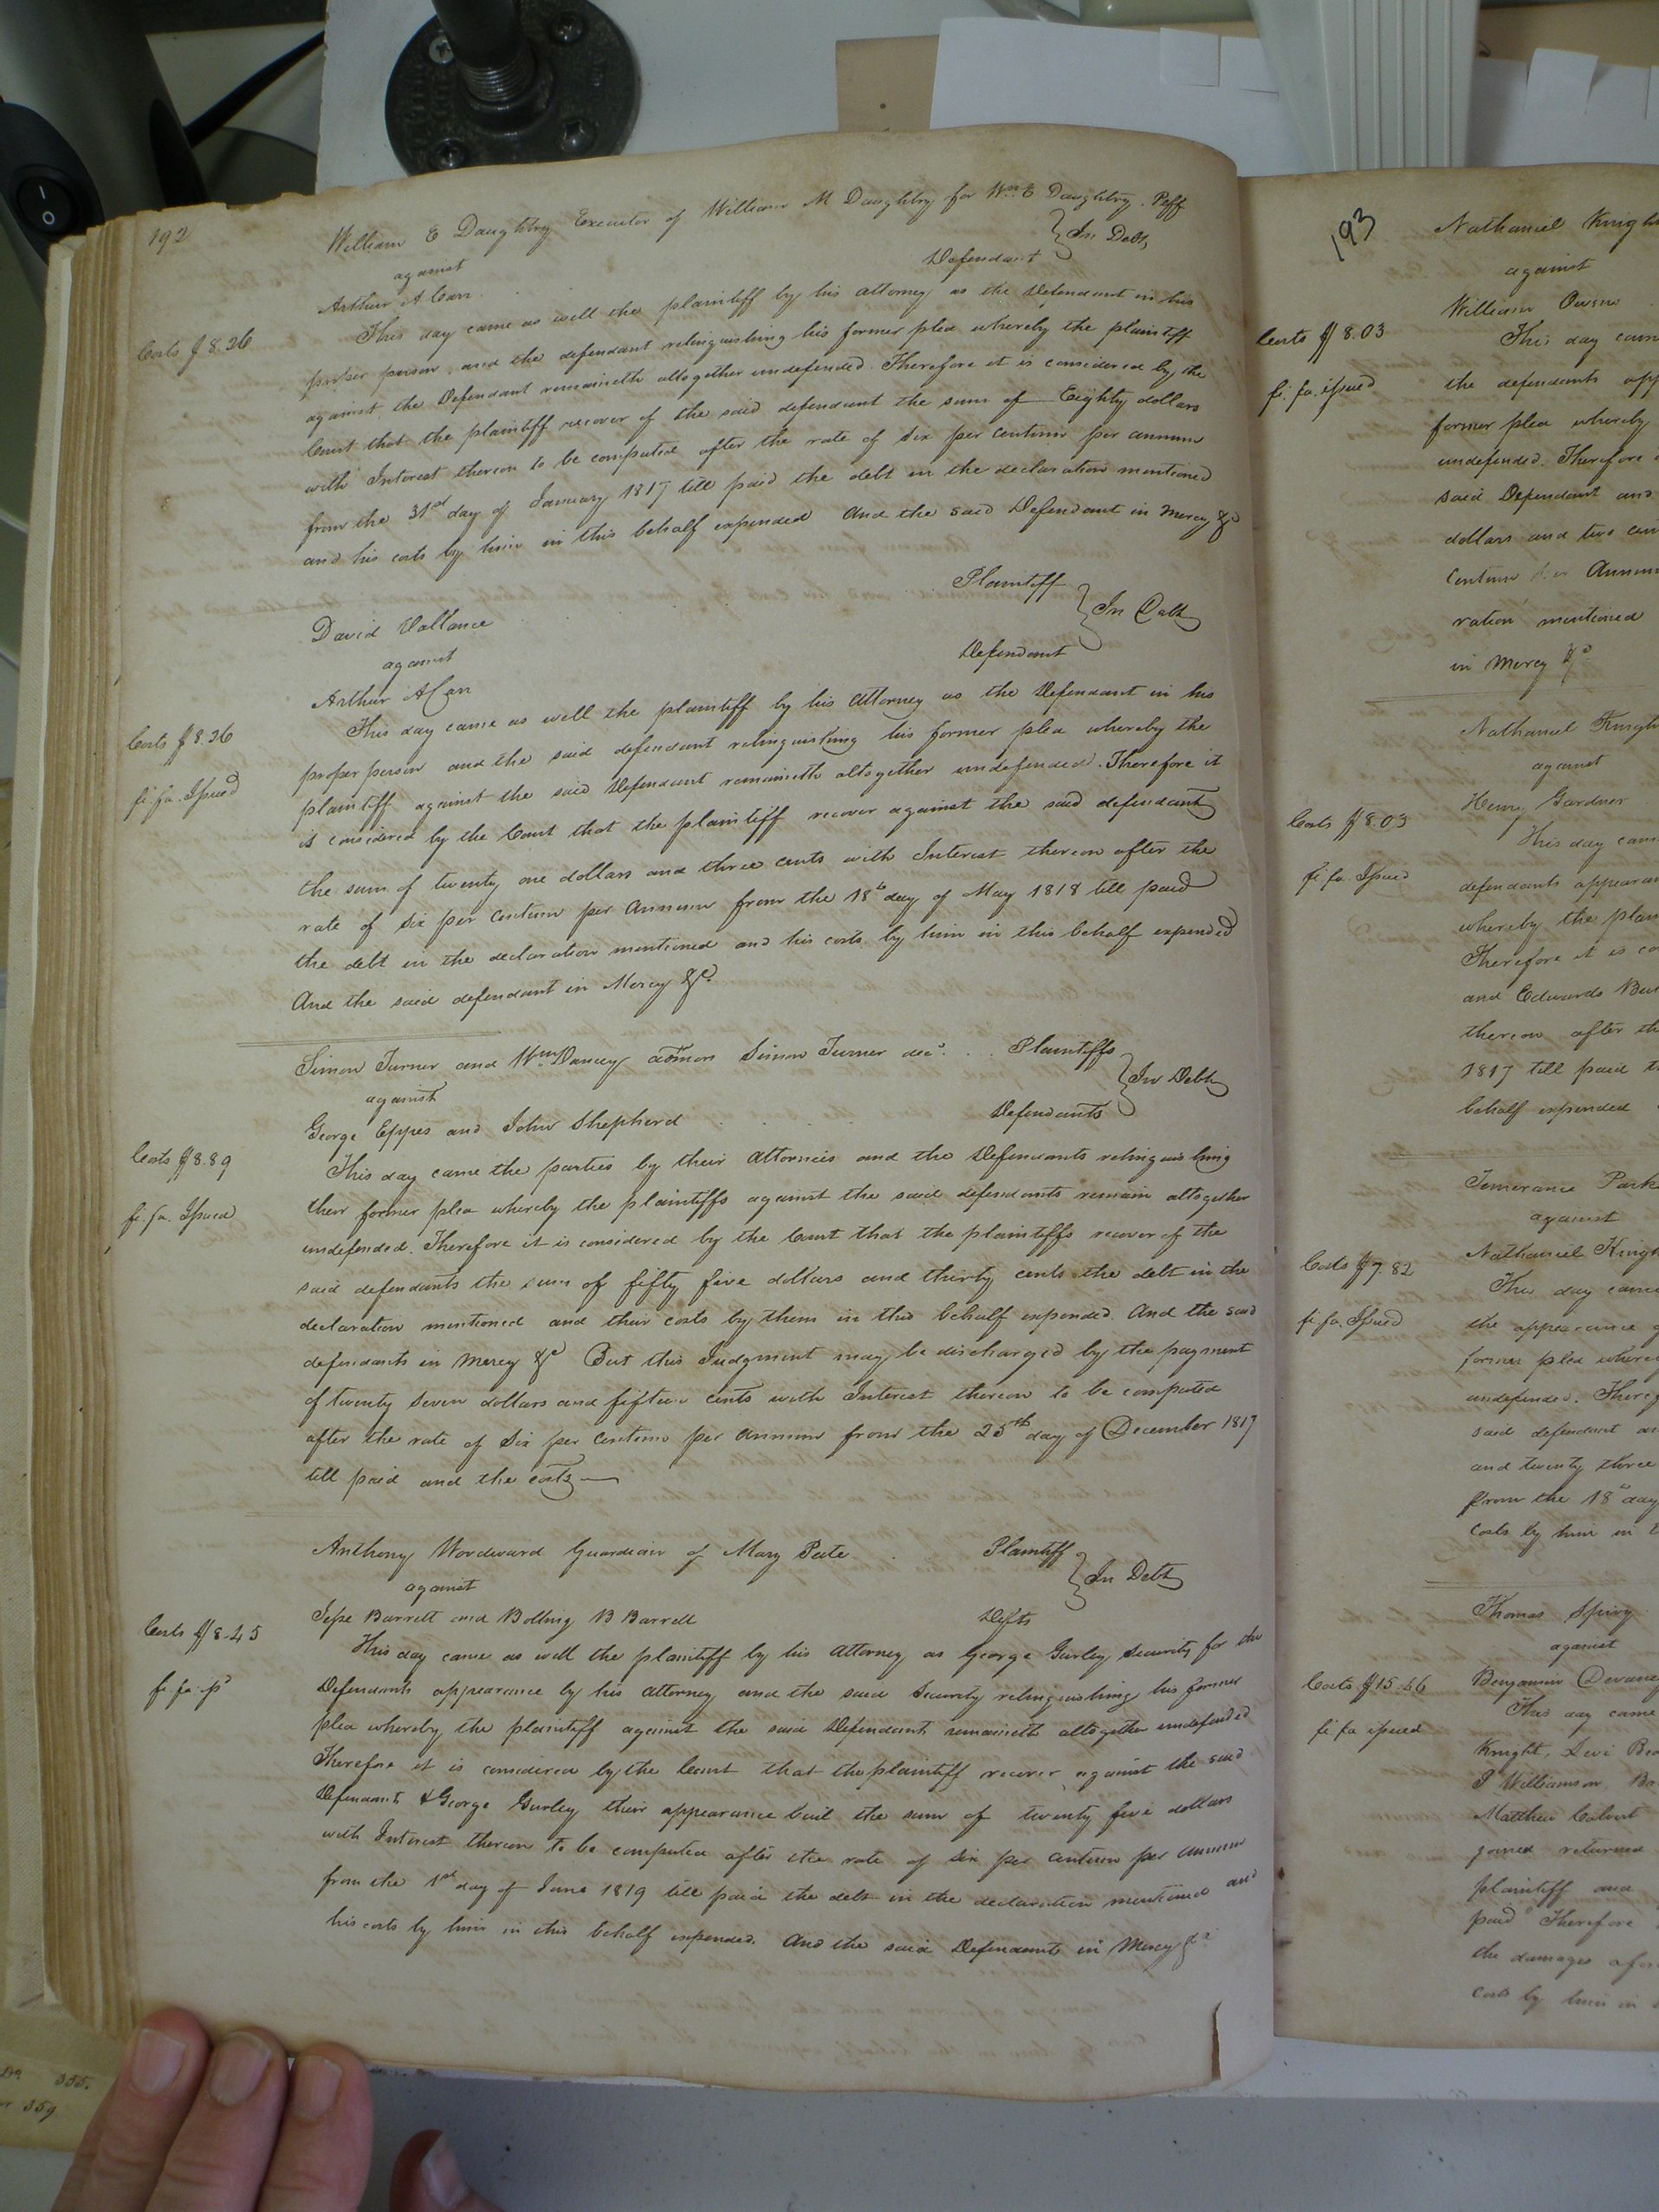 192
William E Daughtry Executor of William M Daughtry for Wm E Daughtry. Plff
against
Defendant } In Debt
Arthur A Carr
Costs $8.26
This day came as well the plaintiff by his attorney as the Defendant in his
proper person, and the defendant relinquishing his former plea whereby the plaintiff
against the Defendant remaineth altogether undefended. Therefore it is considered by the
Court that the plaintiff recover of the said defendant the sum of Eighty dollars
with Interest thereon to be computed after the rate of Six per centum per annum
from the 31st day of January 1817 till paid the debt in the declaration mentioned
and his costs by him in this behalf expended And the said Defendant in Mercy &c
David Vallance Plaintiff
against } In Debt
Arthur A Carr Defendant
Costs $8.36
fi. fa. Issued
This day came as well the plaintiff by his Attorney as the Defendant in his
proper person and the said defendant relinquishing his former plea whereby the
plaintiff against the said Defendant remaineth altogether undefended. Therefore it
is considered by the Court that the plaintiff recover against the said defendant
the sum of twenty one dollars and three cents with Interest thereon after the
rate of Six per Centum per Annum from the 18th day of May 1818 till paid
the debt in the declaration mentioned and his costs by him in this behalf expended
And the said defendant in Mercy &c.
Simon Turner and Wm. Dancy admors Simon Turner decd. . . Plaintiffs
against } In Debt
George Eppes and John Shepherd . . . . Defendants
Costs $8.89
fi. fa. Issued
This day came the parties by their Attornies and the Defendants relinquishing
their former plea whereby the plaintiffs against the said defendants remain altogether
undefended. Therefore it is considered by the Court that the plaintiffs recover of the
said defendants the sum of fifty five dollars and thirty cents the debt in the
declaration mentioned and their costs by them in this behalf expended. And the said
defendants in Mercy &c But this Judgment may be discharged by the payment
of twenty seven dollars and fifteen cents with Interest thereon to be computed
after the rate of Six per Centum per Annum from the 25th day of December 1817
till paid and the costs
Anthony Woodward Guardian of Mary Pate . Plaintiff
against } In Debt
Jesse Barrett and Bolling B Barrett Defts
Costs $8.45
fi. fa. is
This day came as well the plaintiff by his Attorney as George Gurley Security for the
Defendants appearance by his attorney and the said Security relinquishing his former
plea whereby the plaintiff against the said Defendants remaineth altogether undefended
Therefore it is considered by the Court that the plaintiff recover against the said
Defendants & George Gurley their appearance bail the sum of twenty five dollars
with Interest thereon to be computed after the rate of Six per Centum per Annum
from the 1st day of June 1819 till paid the debt in the declaration mentioned and
his costs by him in this behalf expended. And the said Defendants in Mercy &c
193
Nathaniel Knigh
against
William Owen
Costs $8.03
fi. fa. issued
This day cam
the defendants app
former plea whereby
undefended. Therefore
said Defendant and
dollars and two cen
Centum per Annum
ration mentioned
in Mercy &c
Nathaniel Knigh
against
Henry Gardner
Costs $8.03
fi. fa. Issued
This day cam
defendants appearan
whereby the plain
Therefore it is co
and Edwards
thereon after th
1817 till paid t
behalf expended
Temerance Park
against
Nathaniel Knigh
Costs $7.82
fi. fa. Issued
This day came
the appearance
former plea where
undefended. Theref
said defendant an
and twenty three
from the 18th day
costs by him in t
Thomas Spivy
against
Benjamin Devaney
Costs $15.46
fi fa issued
This day came
Knight, Levi
J Williamson, Ba
Matthew Calvert
joined returned
plaintiff and
paid Therefore
the damages afor
costs by him in
355.
359